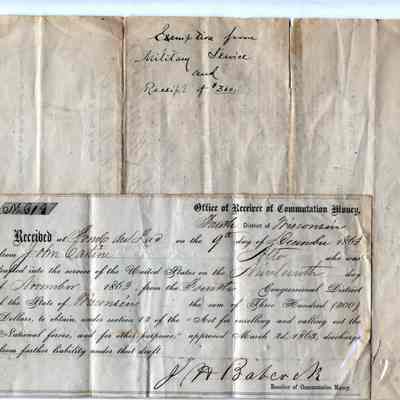 Exemption from
Military Service
and
Receipt of $300
Office of Receiver of Commutation Money,
Fourth District of Wisconsin
Received at Fond du Lac on the 9th day of December 1863
from John Eakins of Otto who was
drafted into the service of the United States on the Nineteenth day
of November 1863, from the Fourth Congressional District
of the State of Wisconsin the sum of Three Hundred (300)
Dollars, to obtain, under section 13 of the "Act for enrolling and calling out the
National forces, and for other purposes," approved March 3d, 1863, discharge
from further liability under that draft.
J H Babcock
Receiver of Commutation Money.